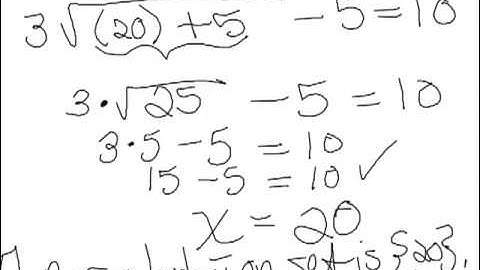 3√(20) + 5 - 5 = 10
3·√25 - 5 = 10
3·5 - 5 = 10
15 - 5 = 10 ✓
x = 20
set is {20}.